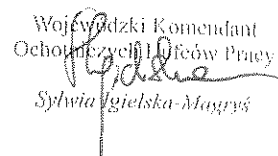 Wojewódzki Komendant
Ochotniczych Hufców Pracy
Sylwia Igielska-Magryś